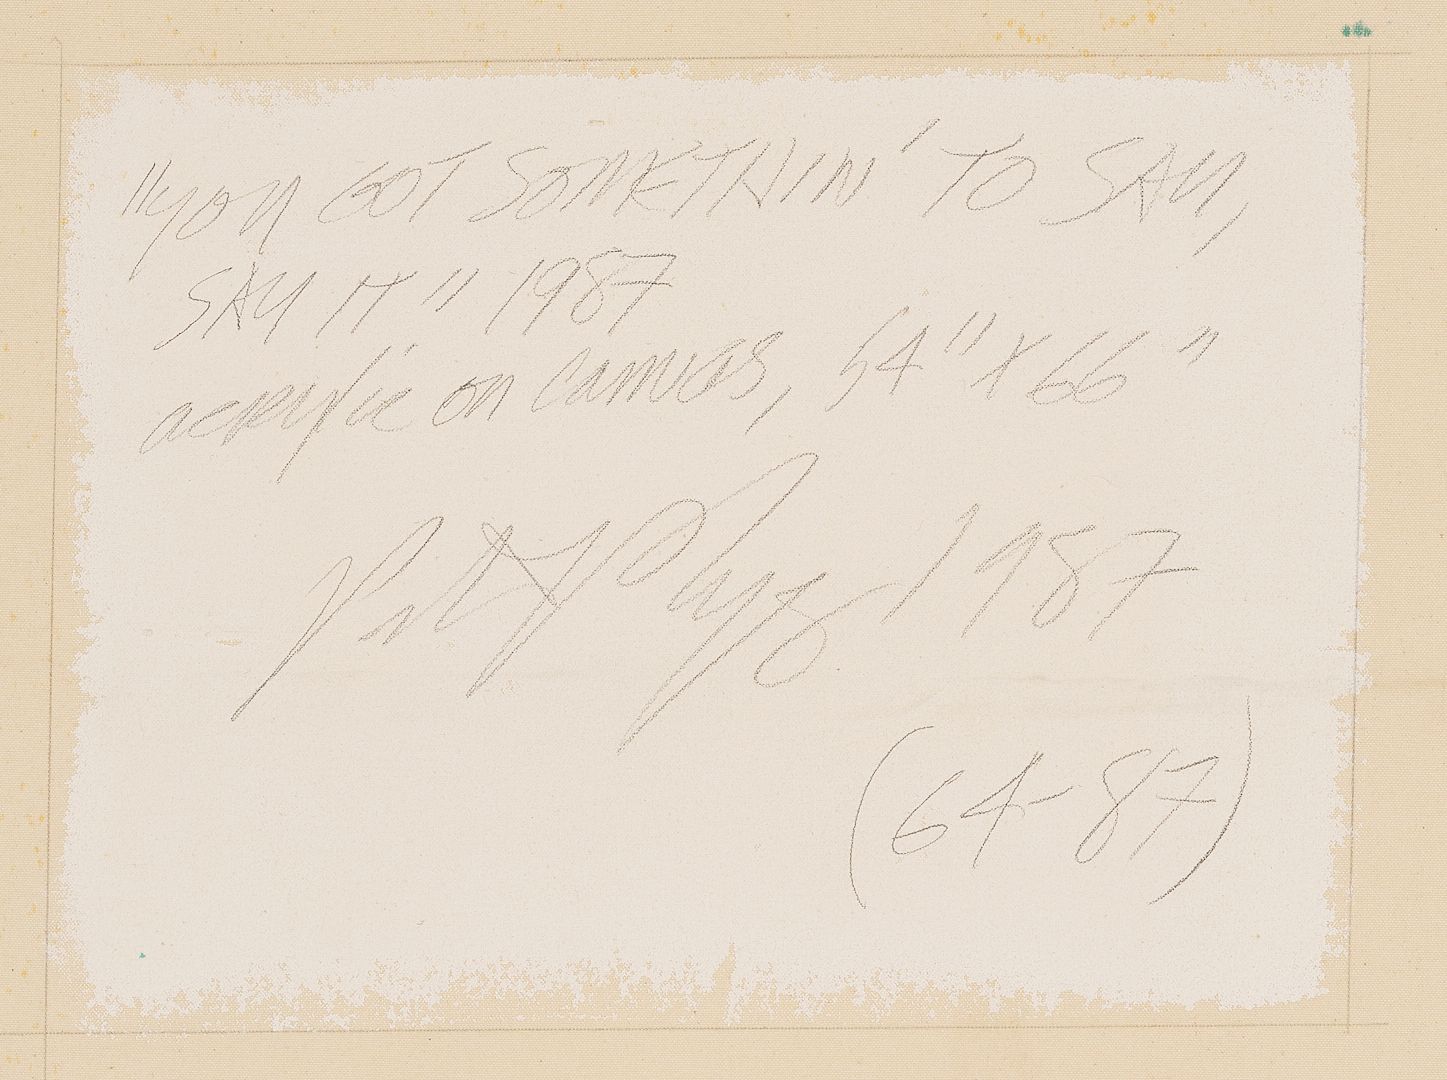 "you GOT SOMETHIN' TO SAY,
SAY IT" 1987
acrylic on canvas, 54" x 66"
1987
(64-87)